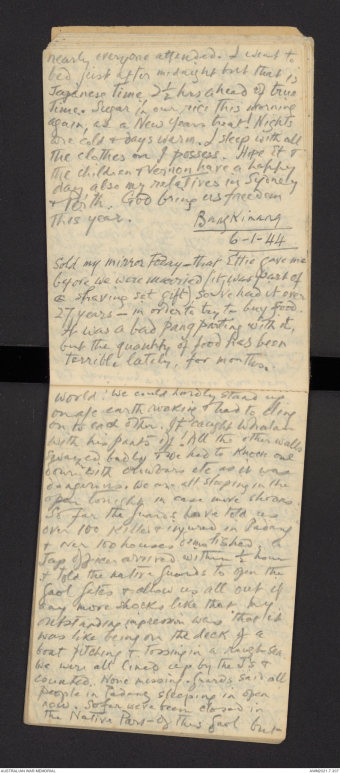 nearly everyone attended. I went to
bed just after midnight but that is
Japanese time 2½ hrs ahead of true
time. Sugar in our rice this morning
again, as a New Years treat! Nights
are cold & days warm. I sleep with all
the clothes on I possess. Hope St &
the children & Vernon have a happy
day, also my relatives in Sydney
& Perth. God bring us freedom
this year.
6-1-44
Sold my mirror today – that Ettie gave me
before we were married (it was part of
a shaving set gift) so I've had it over
27 years – in order to try & buy food.
It was a bad pang parting with it,
but the quantity of food has been
terrible lately, for months.
world! We could hardly stand up
on earth & had to cling
on to each other. It caught
with his pants off! All the other walls
swayed badly & we had to knock one
down with crowbars etc as it was
dangerous. We are all sleeping in the
open tonight in case more shocks.
So far the guards have told us
over 100 killed & injured in Padang
& over 100 houses demolished. A
Jap officer arrived within ½ hour
& told the native guards to open the
Gaol gates & allow us all out if
any more shocks like that. My
outstanding impression was that it
was like being on the deck of a
boat pitching & tossing in a rough sea.
We were all lined up by the J's &
counted. None missing. Guards said all
people in Padang sleeping in open
now. Some were been closed in
the Native Part of this Gaol but
AUSTRALIAN WAR MEMORIAL